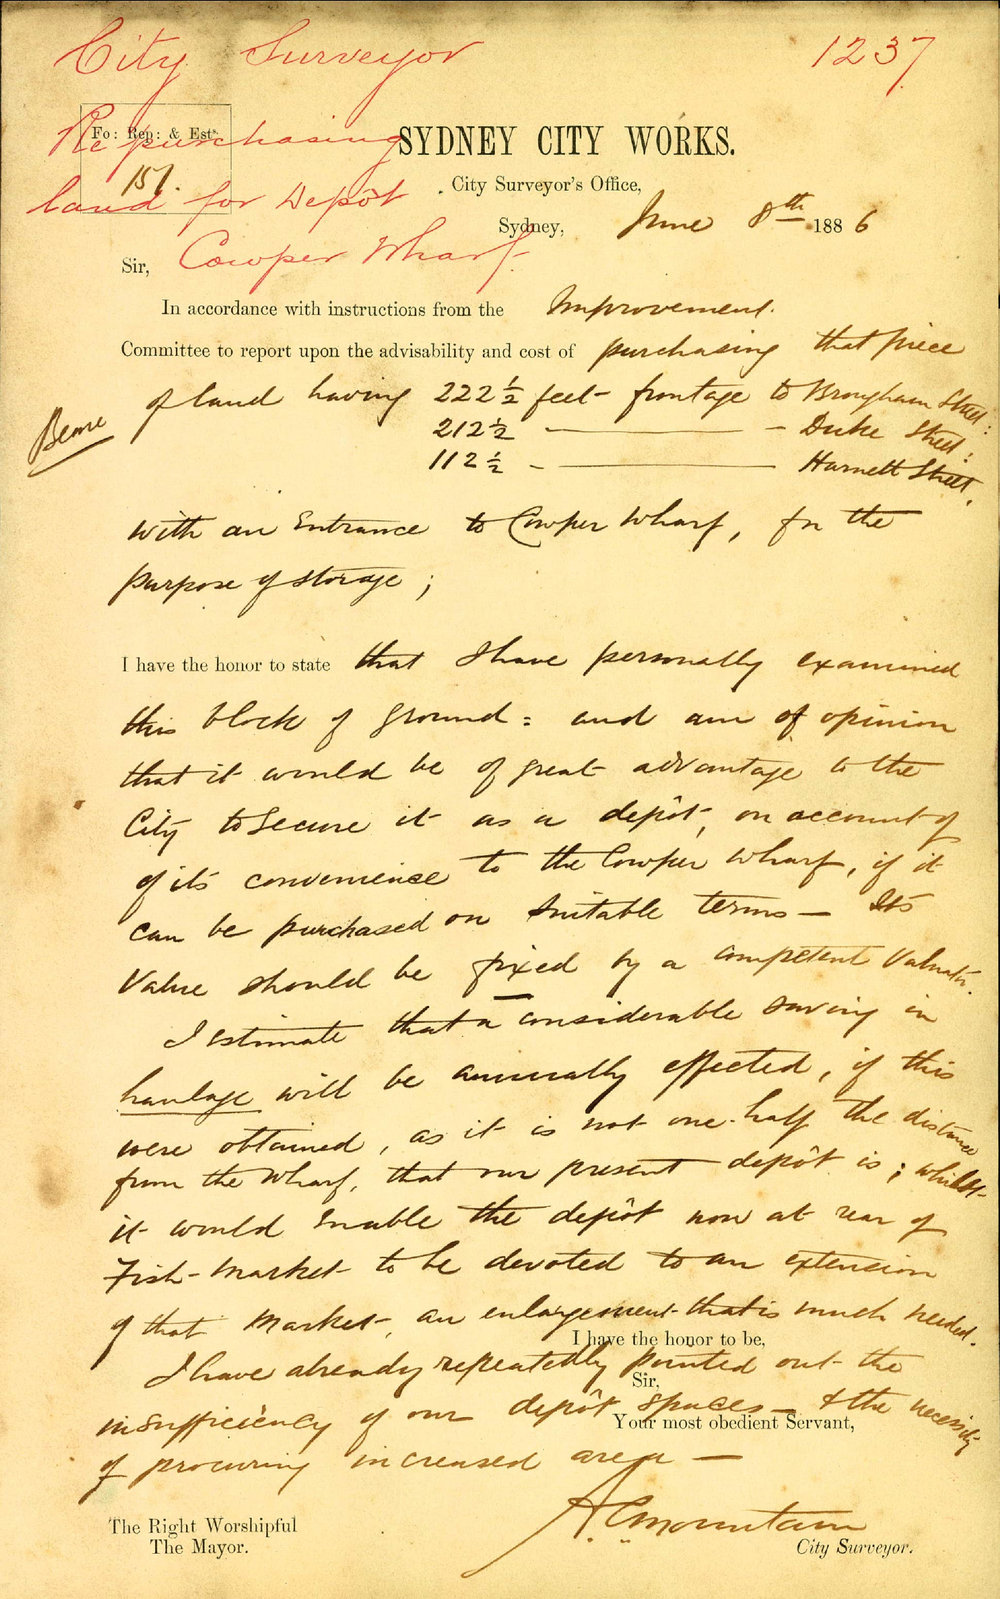 City Surveyor
1237
Re purchasing
land for Depôt
Cowper Wharf
Fo: Rep: & Est.
157.
SYDNEY CITY WORKS.
City Surveyor's Office,
Sydney, June 8th 1886
Sir,
In accordance with instructions from the Improvement.
Committee to report upon the advisability and cost of purchasing that piece
of land having 222½ feet frontage to Brougham Street:
212½ — — Duke Street:
112½ - — Harnett Street,
with an Entrance to Cowper Wharf, for the
purpose of storage;
I have the honor to state that I have personally examined
this block of ground: and am of opinion
that it would be of great advantage to the
City to secure it as a depôt, on account of
of it's convenience to the Cowper Wharf, if it
can be purchased on suitable terms — It's
Value should be fixed by a competent
I estimate that a considerable saving in
haulage will be annually effected, if this
were obtained, as it is not one-half the distance
from the Wharf, that our present depôt is; whilst
it would enable the depôt now at rear of
Fish-Market to be devoted to an extension
of that Market, an enlargement that is much needed.
I have already repeatedly pointed out the
insufficiency of our depôt spaces — & the necessity
of procuring increased area —
I have the honor to be,
Sir,
Your most obedient Servant,
A.C. Mountain
City Surveyor.
The Right Worshipful
The Mayor.